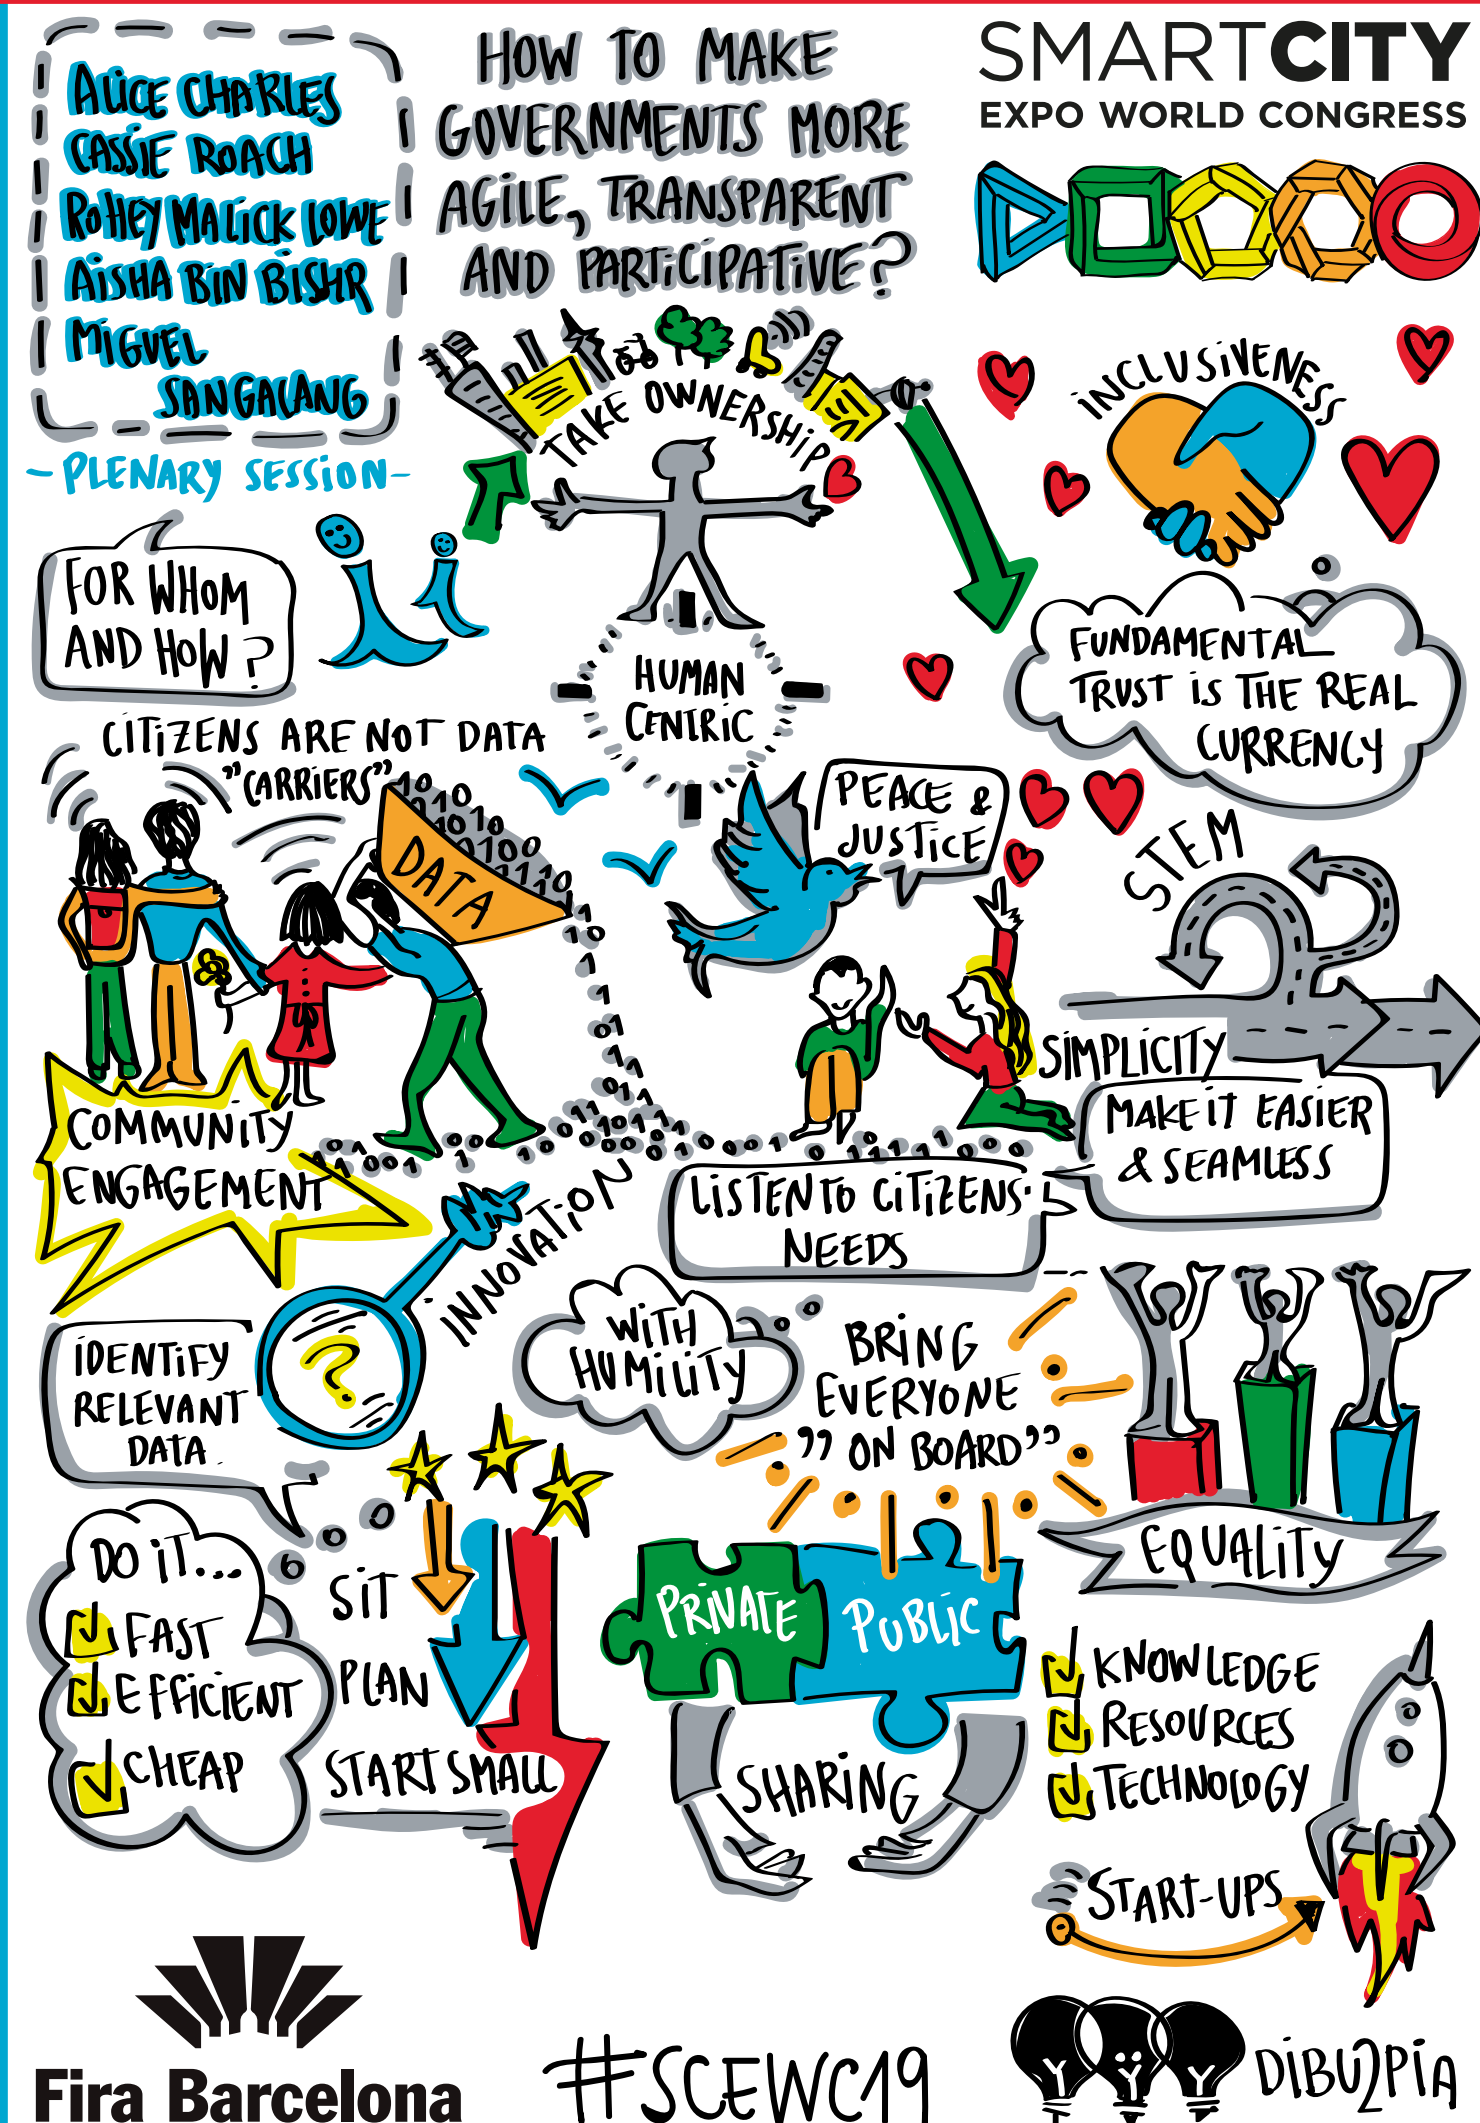 ALICE CHARLES
CASSIE ROACH
ROHEY MALICK LOWE
AISHA BIN BISHR
MIGUEL
SANGALANG
- PLENARY SESSION -
HOW TO MAKE
GOVERNMENTS MORE
AGILE, TRANSPARENT
AND PARTICIPATIVE?
SMARTCITY
EXPO WORLD CONGRESS
TAKE OWNERSHIP
INCLUSIVENESS
FOR WHOM
AND HOW?
HUMAN
CENTRIC
FUNDAMENTAL
TRUST IS THE REAL
CURRENCY
CITIZENS ARE NOT DATA
"CARRIERS"
DATA
PEACE &
JUSTICE
STEM
SIMPLICITY
MAKE IT EASIER
& SEAMLESS
COMMUNITY
ENGAGEMENT
INNOVATION
LISTEN TO CITIZENS'
NEEDS
IDENTIFY
RELEVANT
DATA.
?
WITH
HUMILITY
BRING
EVERYONE
"ON BOARD"
EQUALITY
DO IT...
FAST
EFFICIENT
CHEAP
SIT
PLAN
START SMALL
PRIVATE
PUBLIC
SHARING
KNOWLEDGE
RESOURCES
TECHNOLOGY
START-UPS
Fira Barcelona
#SCEWC19
DIBU2PIA